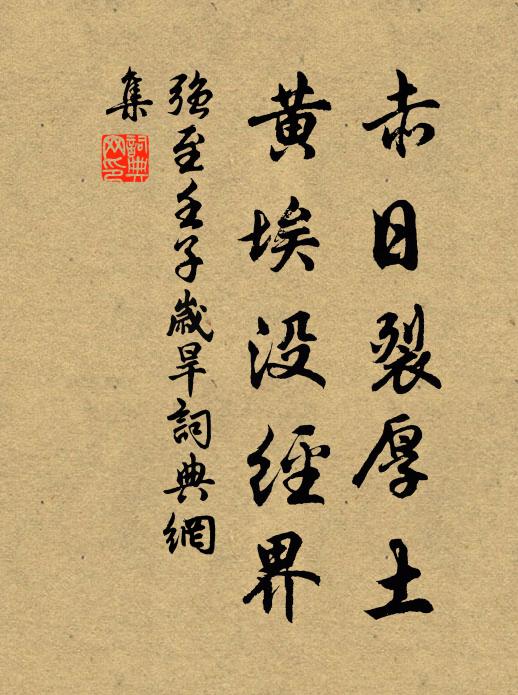 赤日裂厚土
黄埃没經界
強至壬子歲旱詞典網
集
詞典网印